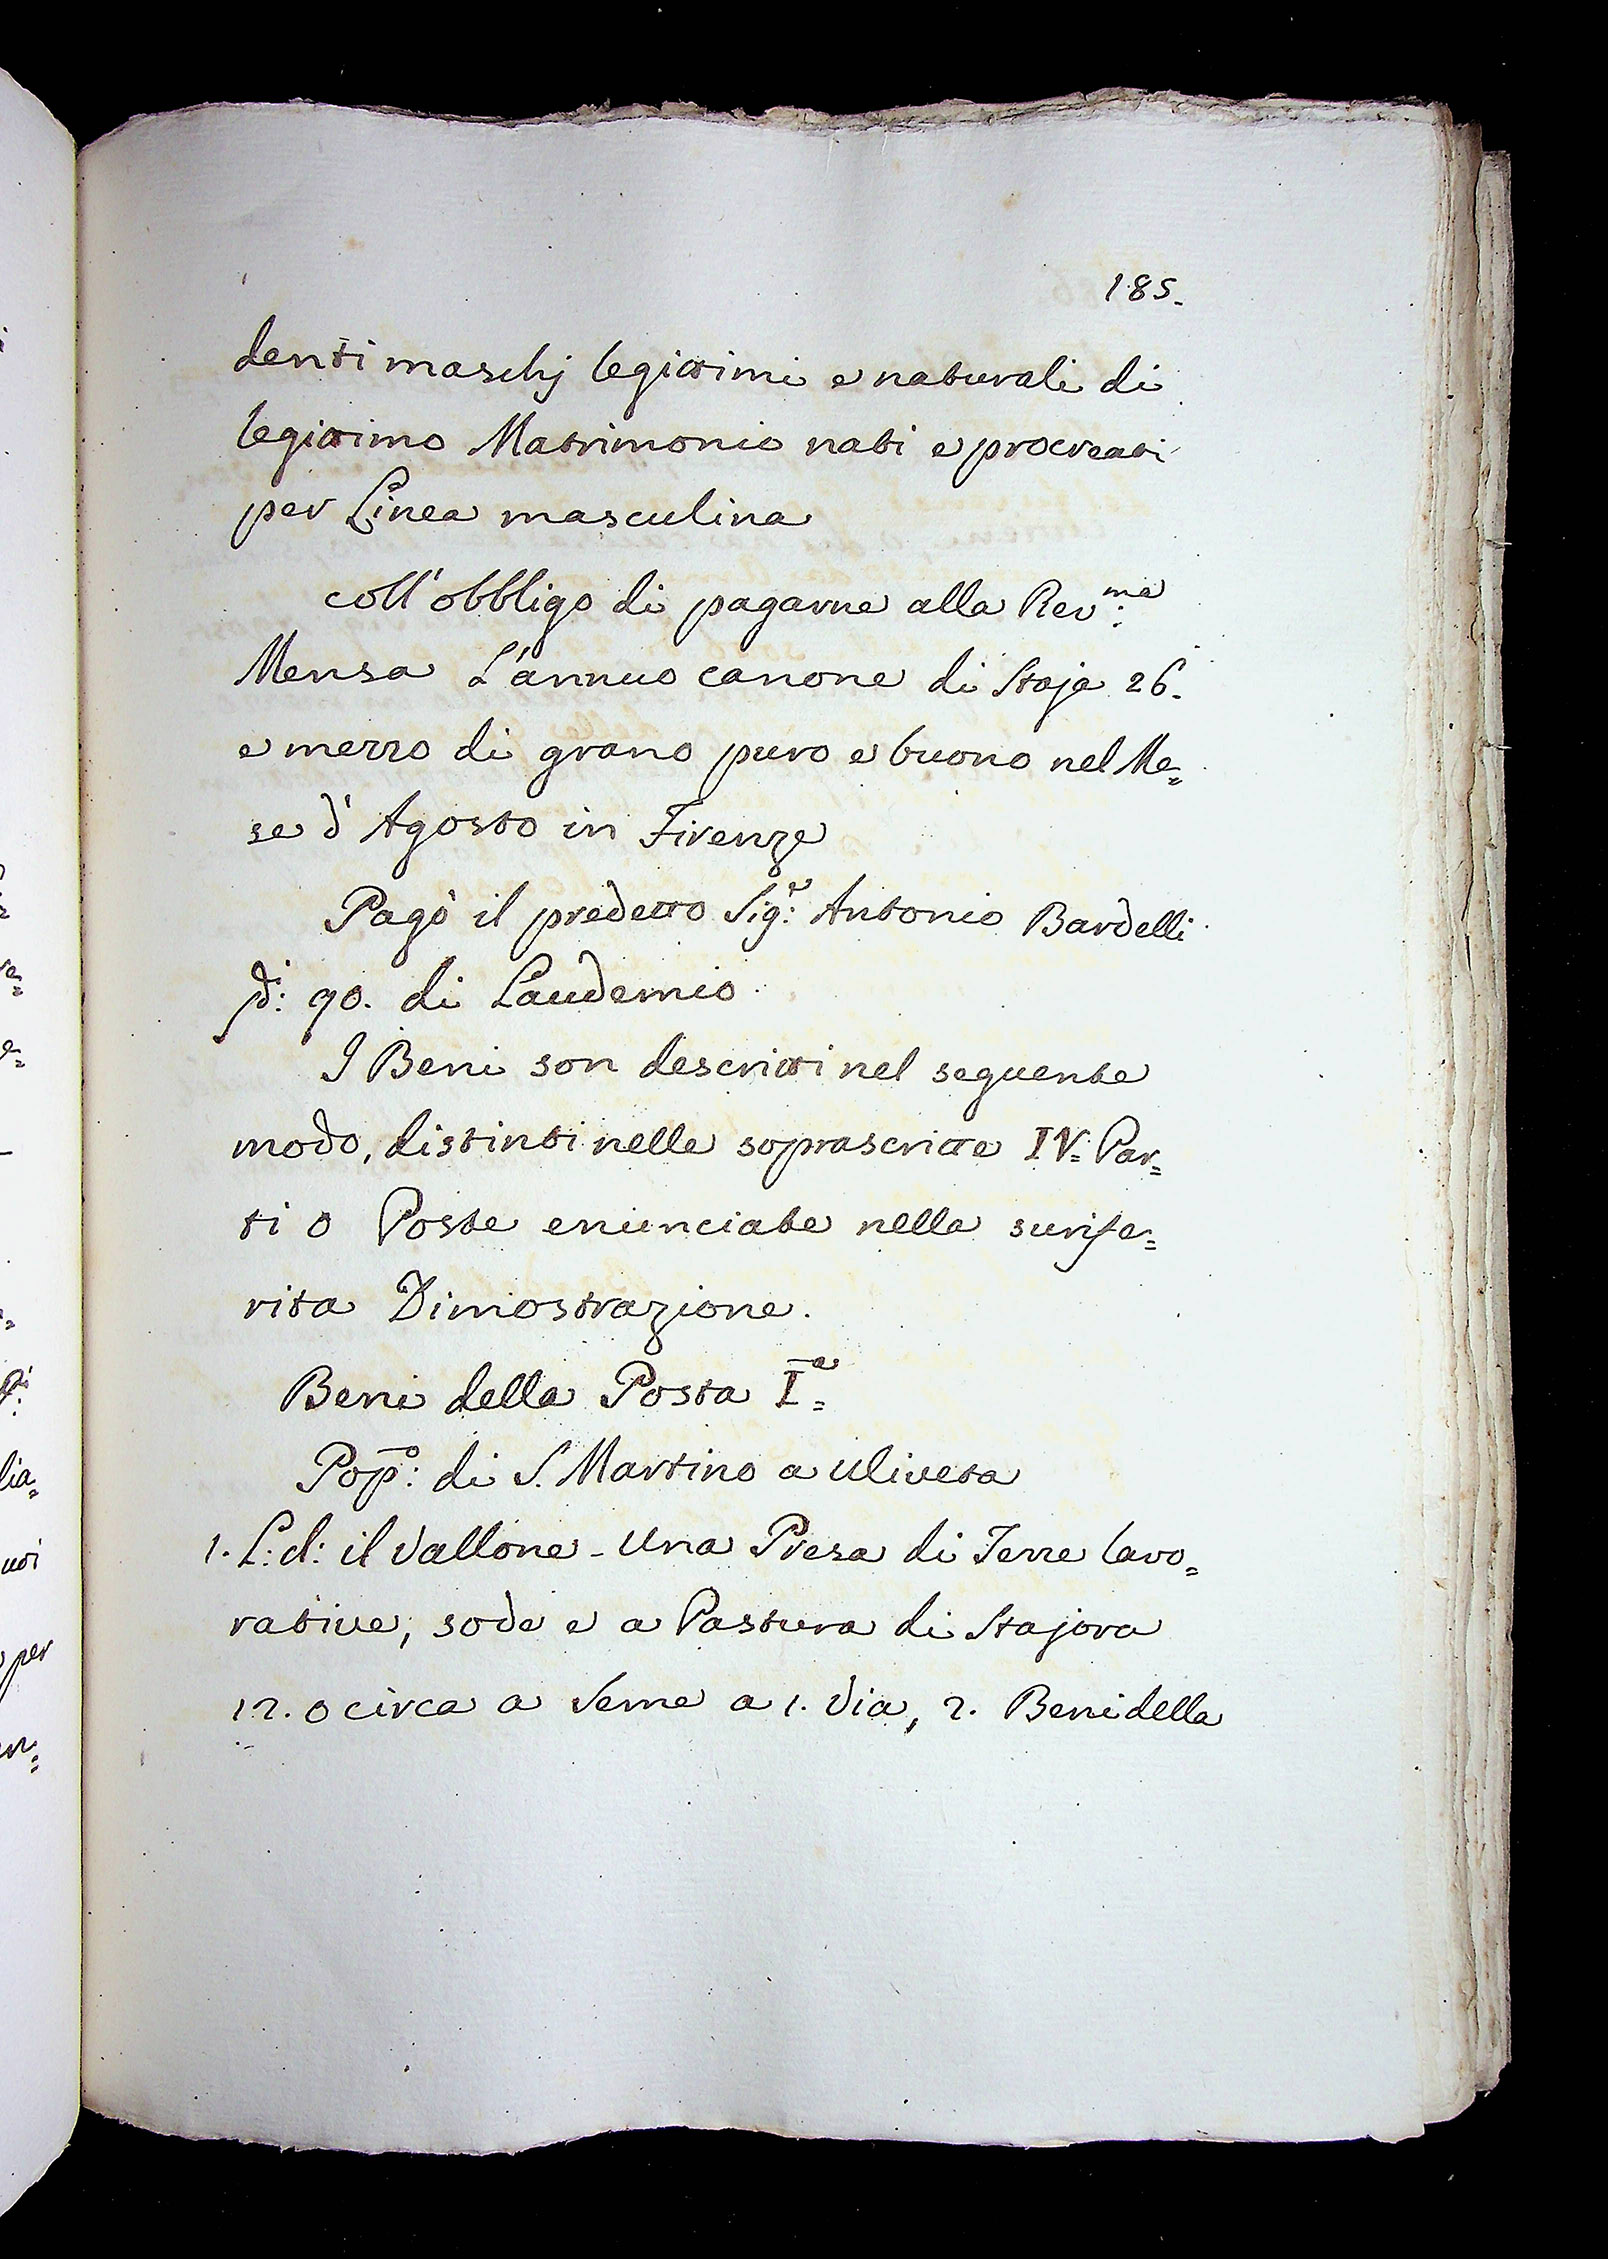 185.
denti maschj legittimi e naturali di
legittimo Matrimonio nati e procreati
per Linea masculina
coll'obbligo di pagarne alla Rev:ma
Mensa L'annuo canone di Staja 26.
e mezzo di grano puro e buono nel Me=
se d'Agosto in Firenze
Pagò il predetto Sig:r Antonio Bardelli
90. di Laudemio
I Beni son descritti nel seguente
modo, distinti nelle soprascritte IV. Par=
ti o Poste enunciate nella surife=
rita Dimostrazione.
Beni della Posta I.a
Pop:o di S. Martino a Uliveta
1. L: d: il Vallone - Una Presa di Terre lavo=
rative, sode e a Pastura di Stajora
12. o circa a Seme a 1. Via, 2. Beni della